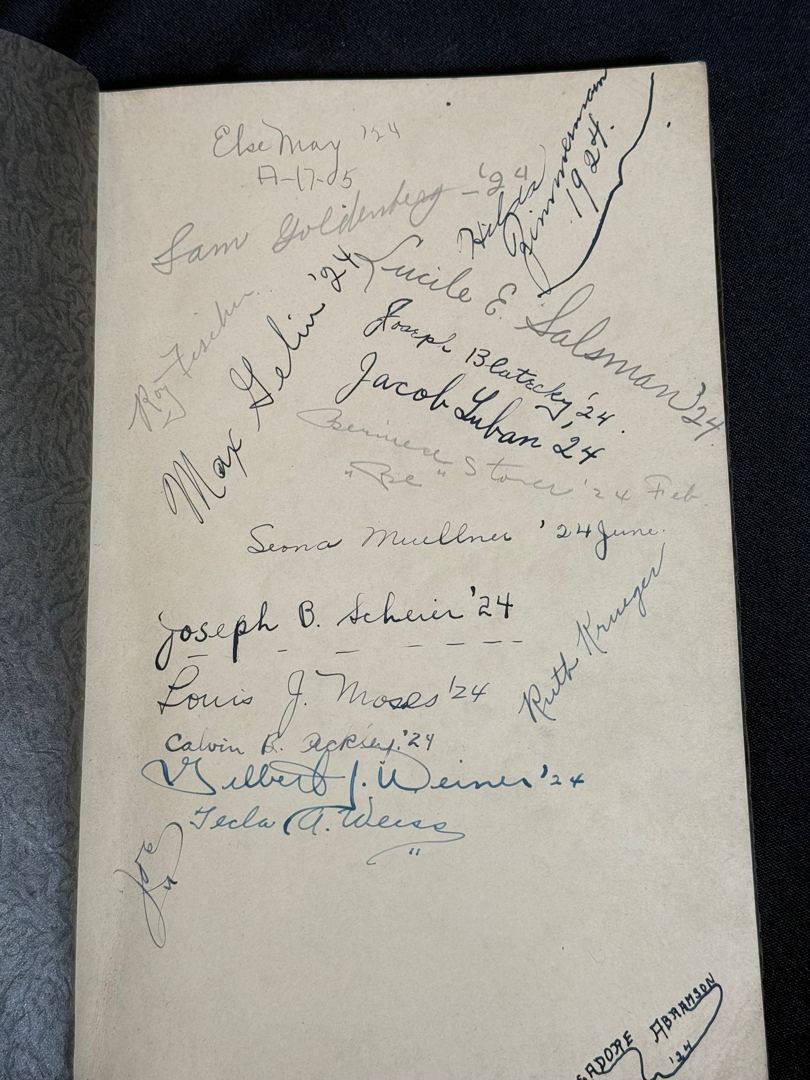 Else May '24
A-17-05
Sam Goldenberg - '24
Hilda
Zimmermann
1924.
Lucile E. Salsman '24
Roy Fischer
Max Gelin '24
Joseph Blatecky '24.
Jacob Luban '24
Bernice Storer '24 Feb.
"Be"
Seona Muellner '24 June.
Joseph B. Scheier '24
Ruth Krueger
Louis J. Moses '24
Calvin B. '24
Gilbert J. Weiner '24
Tecla A. Weiss
"
Joe
SADORE ABRAMSON
'24